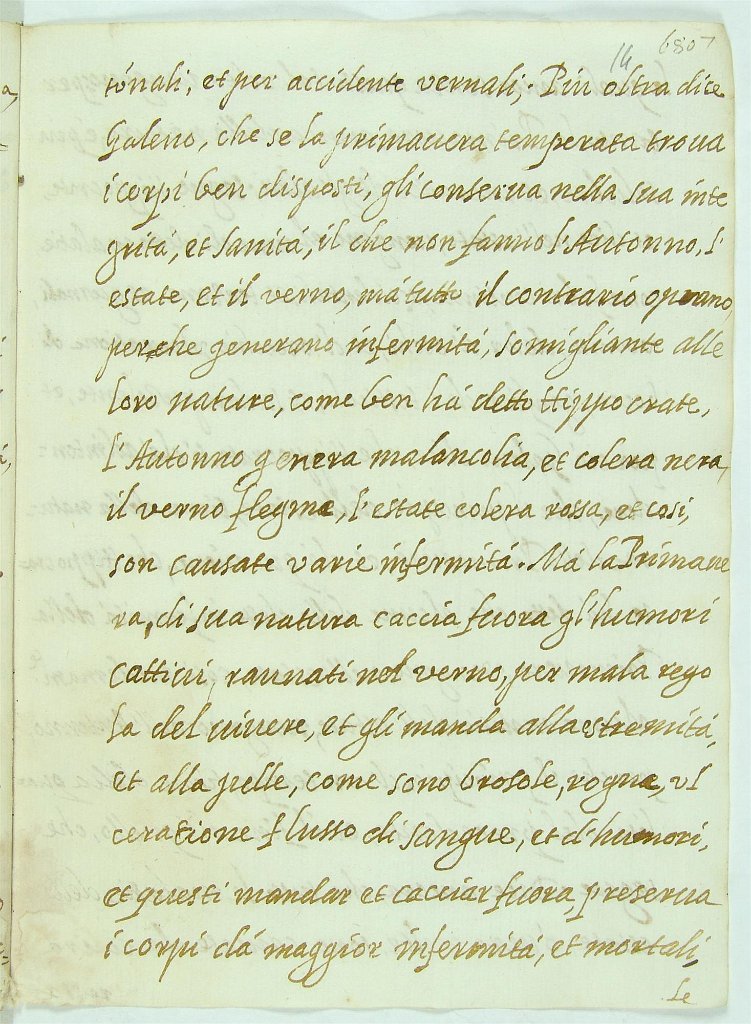 14 6807
tónali, et per accidente vernali; Piu oltra dice
Galeno, che se la primauera temperata troua
i corpi ben disposti, gli conserua nella sua inte
gritá, et sanitá, il che non fanno l'Autonno, l'
estate, et il verno, má tutto il contrario operano,
perche generano infermitá, somigliante alle
loro nature, come ben há detto Hippocrate,
l'Autonno genera malancolia, et colera nera,
il verno flegma, l'estate colera rossa, et cosi,
son causate varie infermitá. Má la Primaue
ra, di sua natura caccia fuora gl'humori
cattiui, raunati nel verno, per mala rego
la del uiuere, et gli manda alla estremitá,
et alla pelle, come sono brosole, rogna, vl
ceratione flusso di sangue, et d'humori,
et questi mandar et cacciar fuora, preserua
i corpi dá maggior infermitá, et mortali
se